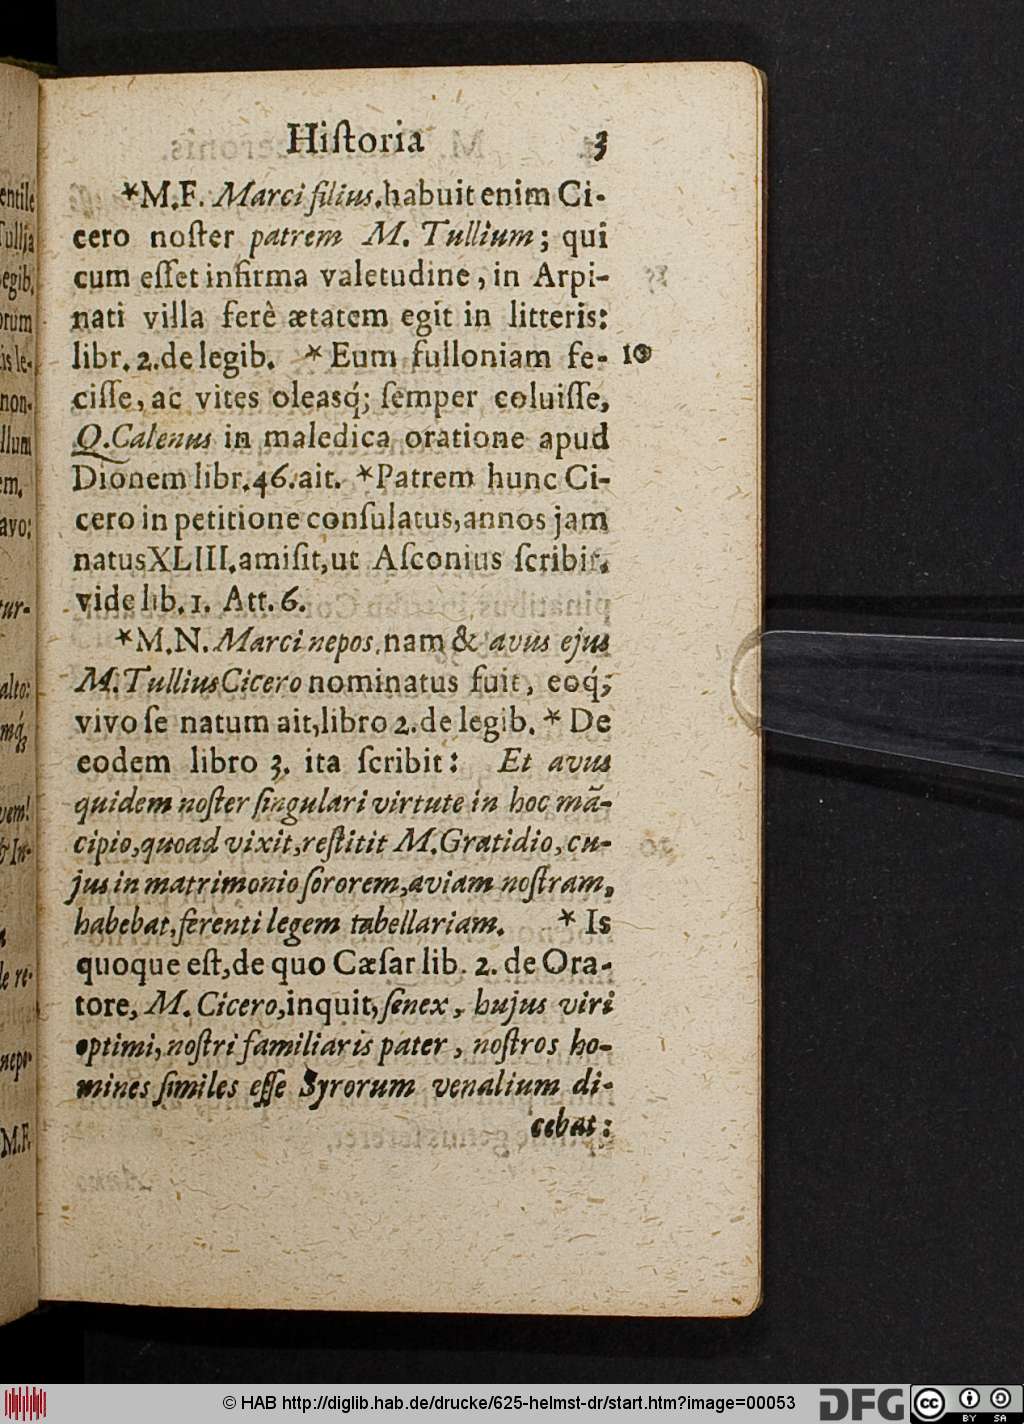 Hiſtoria 3
*M.F. Marci filius. habuit enim Ci-
cero noſter patrem M. Tullium; qui
cum eſſet infirma valetudine, in Arpi-
nati villa ferè ætatem egit in litteris:
libr. 2. de legib. * Eum fulloniam fe- 10
ciſſe, ac vites oleasq́; ſemper coluiſſe,
Q. Calenus in maledica oratione apud
Dionem libr. 46. ait. *Patrem hunc Ci-
cero in petitione conſulatus, annos jam
natus XLIII. amiſit, ut Aſconius ſcribit.
vide lib. 1. Att. 6.
*M.N. Marci nepos. nam & avus ejus
M. Tullius Cicero nominatus fuit, eoq́;
vivo ſe natum ait, libro 2. de legib. * De
eodem libro 3. ita ſcribit: Et avus
quidem noſter ſingulari virtute in hoc mā-
cipio, quoad vixit, reſtitit M. Gratidio, cu-
jus in matrimonio ſororem, aviam noſtram,
habebat, ferenti legem tabellariam. * Is
quoque eſt, de quo Cæſar lib. 2. de Ora-
tore, M. Cicero, inquit, ſenex, hujus viri
optimi, noſtri familiaris pater, noſtros ho-
mines ſimiles eſſe Syrorum venalium di-
cebat:
entile
Tullia
egib.
orum
is le-
non-
llum
em.
avo:
tur-
alto:
vem!
& In-
le re-
nepo-
M.F.
© HAB http://diglib.hab.de/drucke/625-helmst-dr/start.htm?image=00053
DFG
cc
BY SA